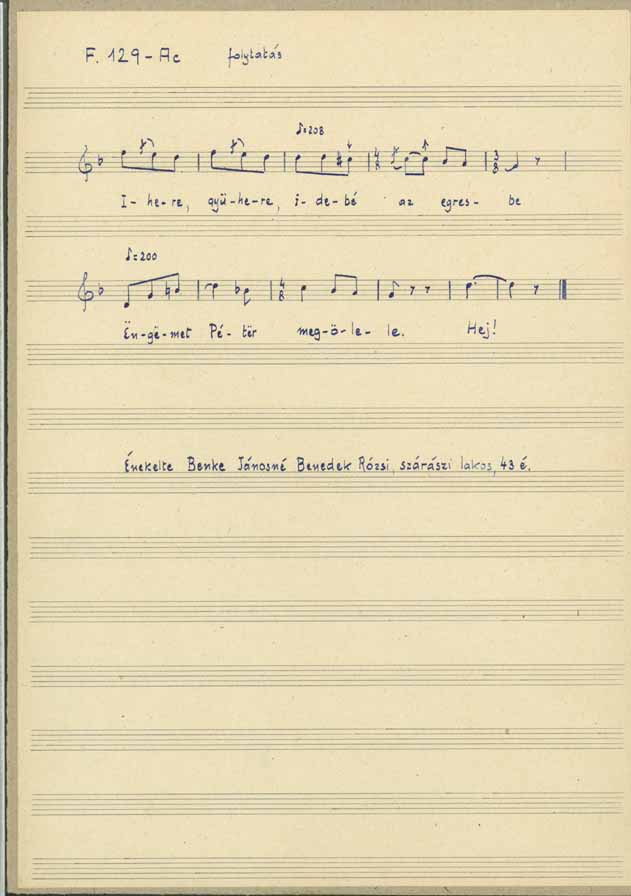 F. 129-Ac folytatás
♪=208
I-he-re, gyü-he-re, i-de-bé az egres-be
♪=200
Ën-gë-met Pé-tër meg-ö-le-le. Hej!
Énekelte Benke Jánosné Benedek Rózsi, szárászi lakos, 43 é.